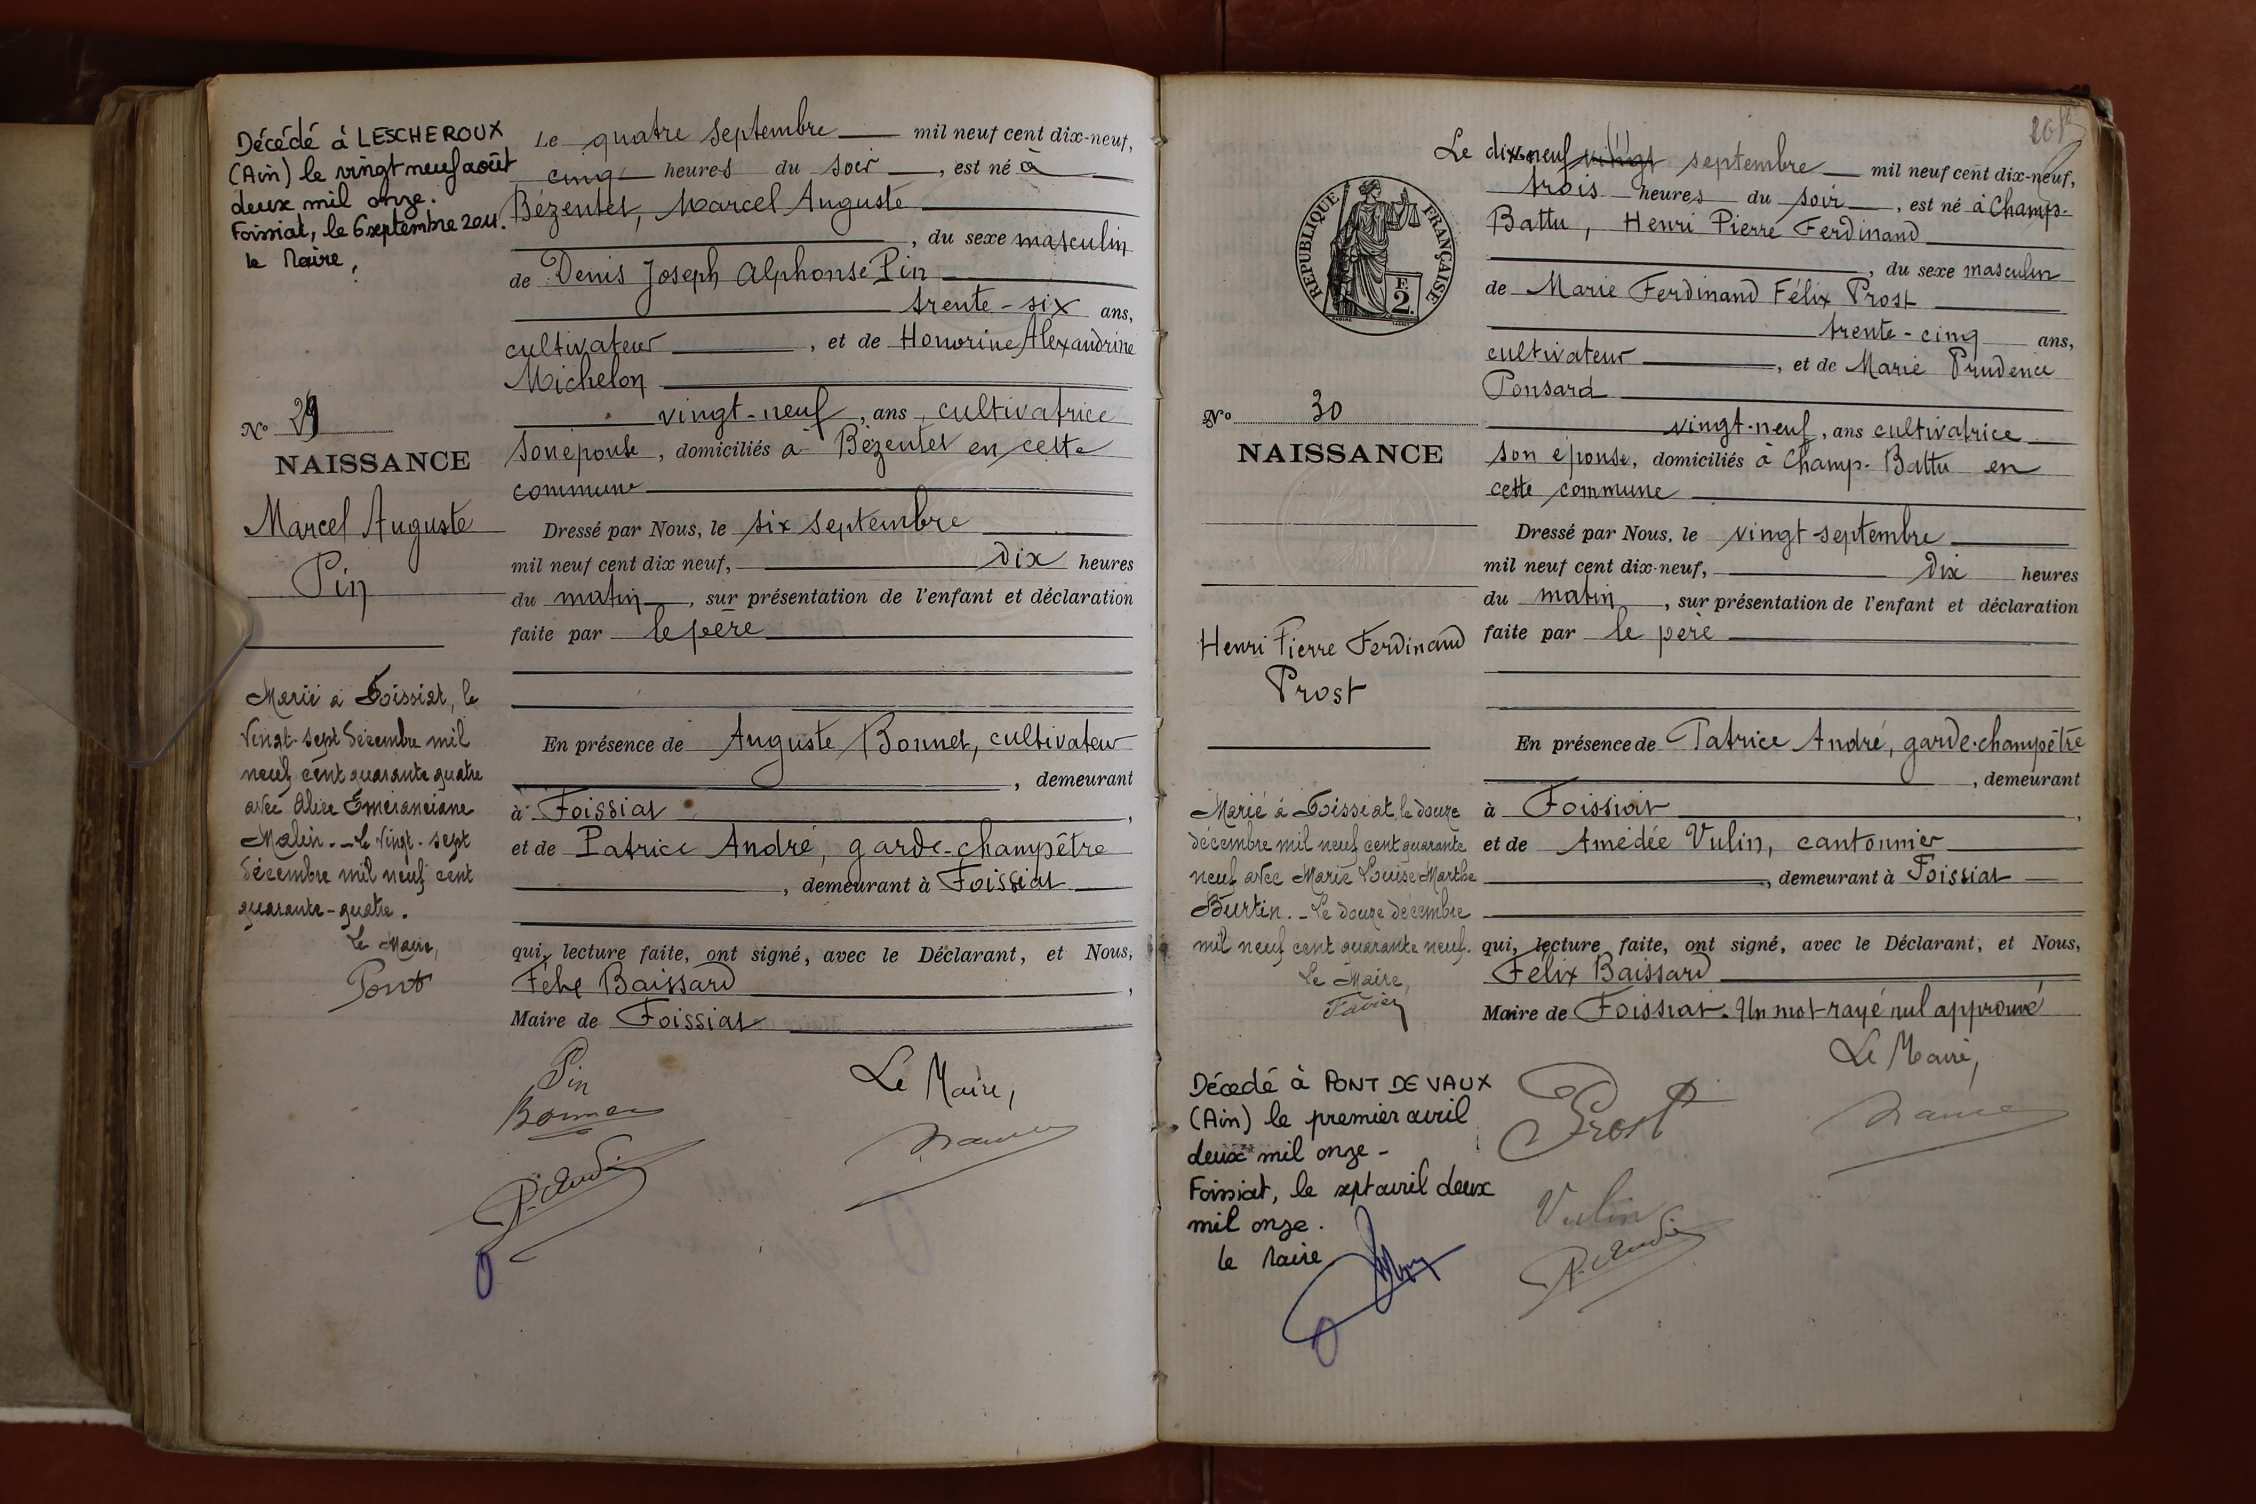 Décédé à LESCHEROUX
(Ain) le vingt neuf août
deux mil onze.
Foissiat, le 6 septembre 2011.
le Maire,
N° 29
NAISSANCE
Marcel Auguste
Pin
Marié à Foissiat, le
vingt-sept décembre mil
neuf cent quarante quatre
avec Alice Emeranciane
Malin. - Le vingt-sept
décembre mil neuf cent
quarante-quatre.
Le Maire,
Pont
Le quatre septembre mil neuf cent dix-neuf,
cinq heures du soir, est né à
Bézentet, Marcel Auguste
, du sexe masculin
de Denis Joseph Alphonse Pin
trente-six ans,
cultivateur, et de Honorine Alexandrine
Michelon
vingt-neuf, ans, cultivatrice
son épouse, domiciliés à Bézentet en cette
commune
Dressé par Nous, le six septembre
mil neuf cent dix neuf, dix heures
du matin, sur présentation de l'enfant et déclaration
faite par le père
En présence de Auguste Bonnet, cultivateur
, demeurant
à Foissiat,
et de Patrice André, garde-champêtre
, demeurant à Foissiat
qui, lecture faite, ont signé, avec le Déclarant, et Nous,
Félix Baissard,
Maire de Foissiat
Pin
Le Maire,
Bonnet
P. André
201
RÉPUBLIQUE FRANÇAISE
F.
2.
N° 30
NAISSANCE
Henri Pierre Ferdinand
Prost
Marié à Foissiat, le douze
décembre mil neuf cent quarante
neuf avec Marie Louise Marthe
Burtin. - Le douze décembre
mil neuf cent quarante neuf.
Le Maire,
Favier
Décédé à PONT DE VAUX
(Ain) le premier avril
deux mil onze -
Foissiat, le sept avril deux
mil onze.
le Maire
Le dix-neuf vingt septembre mil neuf cent dix-neuf,
trois heures du soir, est né à Champ-
Battu, Henri Pierre Ferdinand
, du sexe masculin
de Marie Ferdinand Félix Prost
trente-cinq ans,
cultivateur, et de Marie Prudence
Ponsard
vingt-neuf, ans cultivatrice
son épouse, domiciliés à Champ-Battu en
cette commune
Dressé par Nous, le vingt septembre
mil neuf cent dix-neuf, dix heures
du matin, sur présentation de l'enfant et déclaration
faite par le père
En présence de Patrice André, garde-champêtre
, demeurant
à Foissiat,
et de Amédée Vulin, cantonnier
, demeurant à Foissiat
qui, lecture faite, ont signé, avec le Déclarant, et Nous,
Félix Baissard
Maire de Foissiat. Un mot rayé nul approuvé
Le Maire,
Prost
Vulin
P. André